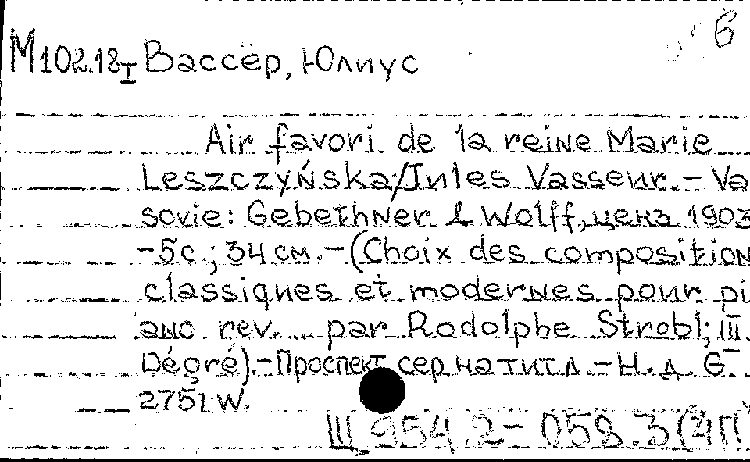 В
М102.18 I Вассёр, Юлиус
Air favori de la reine Marie
Leszczyńska/Jules Vasseur.- Va
sovie: Gebethner & Wolff, ценз 1903
-5с.; 34 см.-(Choix des composition
classiques et modernes pour pi
ano rev... par Rodolphe Strobl; III.
Degré).-Проспект сер на тит.л.-Н.д. G
2751 W.
Щ 954.2-058.3(4П)